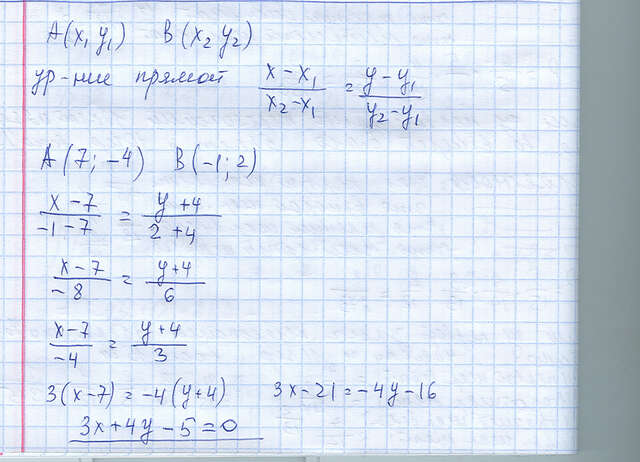 A(x₁ y₁) B(x₂ y₂)
ур-ние прямой (x-x₁)/(x₂-x₁) = (y-y₁)/(y₂-y₁)
A(7; -4) B(-1; 2)
(x-7)/(-1-7) = (y+4)/(2+4)
(x-7)/(-8) = (y+4)/6
(x-7)/(-4) = (y+4)/3
3(x-7) = -4(y+4) 3x-21=-4y-16
3x+4y-5=0